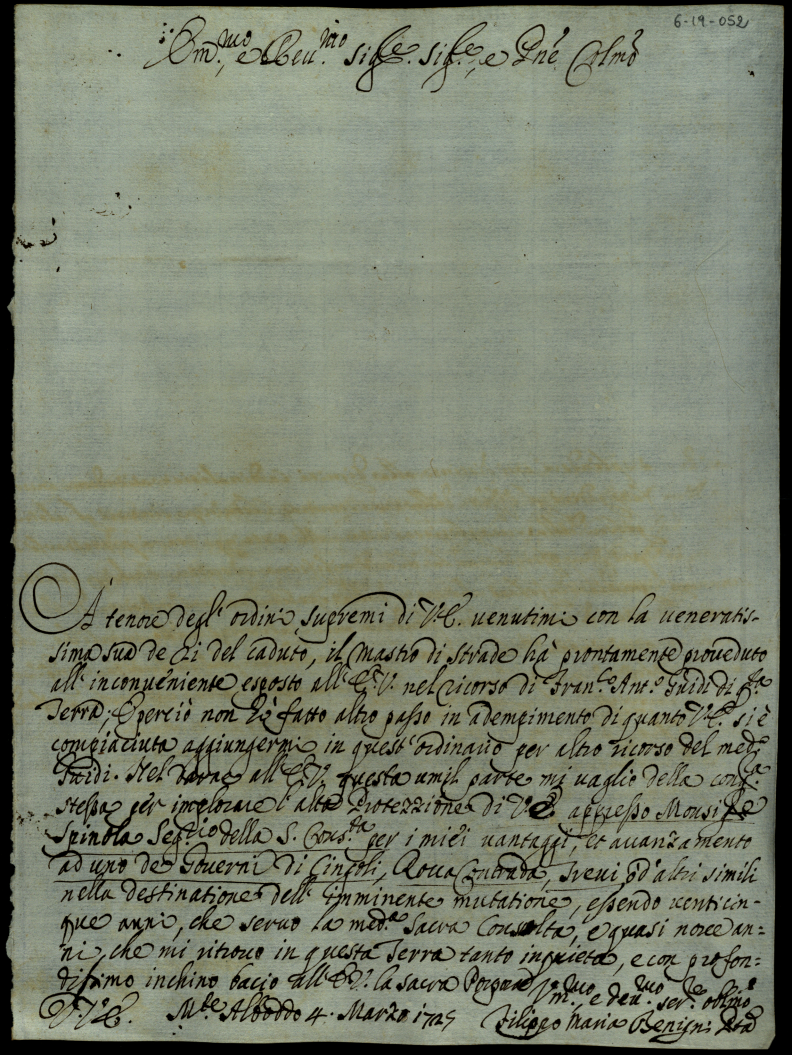 6-19-052
Em.mo, e Reu.mo Sig.re Sig.re, e Pne Colmo
A tenore degl' ordini supremi di V.E. venutimi con la veneratis-
sima sua de 21 del caduto, il Mastro di strade hà prontamente proueduto
all' inconueniente esposto all' E.V. nel ricorso di Fran.co Ant.o Guidi di q.ta
Terra; E perciò non hò fatto altro passo in adempimento di quanto V.E. si è
compiaciuta aggiungermi in quest' ordinario per altro ricorso del med.o
Guidi. Nel darne all' E.V. questa umil parte mi uaglio della cong.ra
stessa per implorare l'alta Protezzione di V.E. appresso Monsig.re
Spinola Seg.rio della S. Cons.ta per i miei uantaggi, et auanzamento
ad uno de Gouerni di Cingoli, Rocca Contrada, Treui ò d'altri simili
nella destinatione dell' imminente mutatione, essendo uenticin-
que anni, che seruo la med.a Sacra Consolta, e quasi noue an-
ni, che mi ritrouo in questa Terra tanto inquieta, e con profon-
dissimo inchino bacio all' E.V. la sacra Porpora
V.E. M.te Alboddo 4. Marzo 1725
Vm.mo, e deu.mo ser.re oblmo
Filippo Maria Benigni Pod